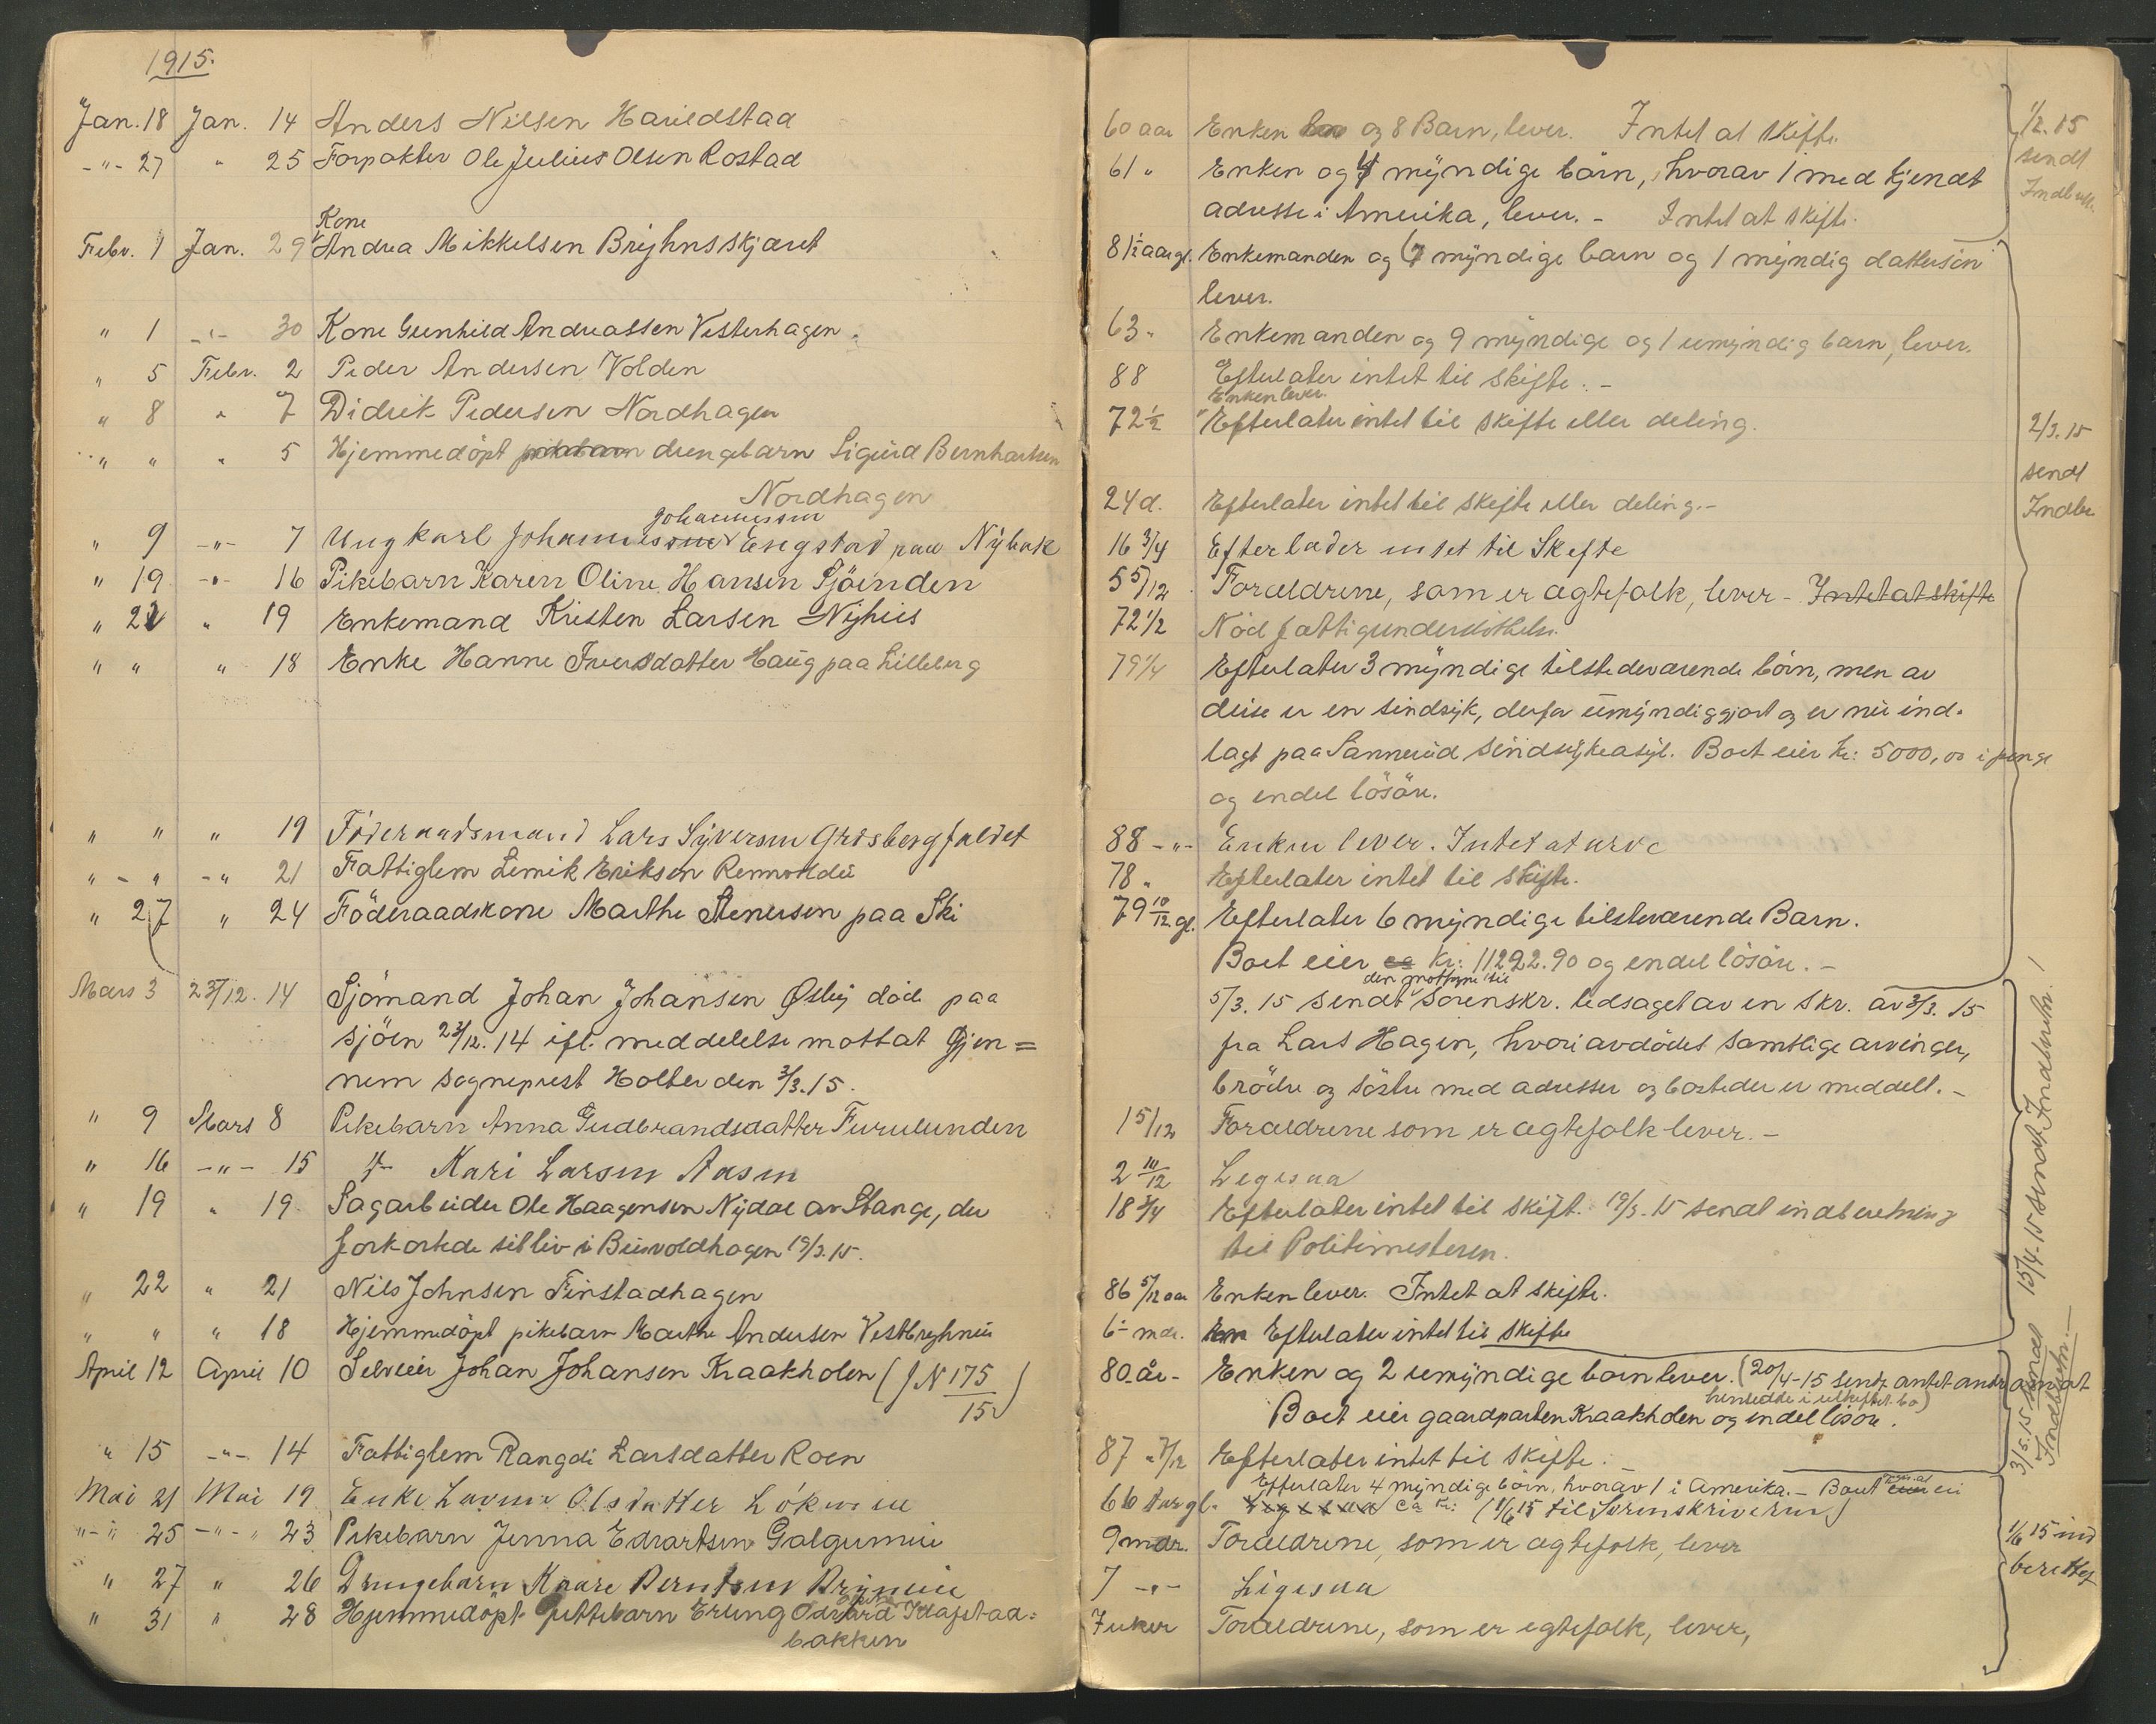 1915.
Jan. 18 Jan. 14 Anders Nilsen Harildstad
-"- 27 " 25 Forpakter Ole Julius Olsen Rostad
Kone
Febr. 1 Jan. 29 Andrea Mikkelsen Bryhnsskjæret
" 1 -"- 30 Kone Gunhild Andreassen Vesterhagen.
" 5 Febr. 2 Peder Andersen Volden
" 8 " 7 Didrik Pedersen Nordhagen
" " " 5 Hjemmedöpt pikebarn drengebarn Sigurd Bernhartsen
Nordhagen
Johannessen
" 9 -"- 7 Ungkarl Johannes Engstad paa Nybak
" 19 -"- 16 Pikebarn Karen Oline Hansen Sjöenden
" 22 " 19 Enkemand Kristen Larsen Nyhus
" " " 18 Enke Hanne Iversdatter Haug paa Lilleberg
" " " 19 Föderaadsmand Lars Syversen Grösbergfaldet
" - " -" 21 Fattiglem Lemik Eriksen
" 27 " 24 Föderaadskone Marthe Stenersen paa Ski
Mars 3 23/12. 14 Sjömand Johan Johansen Østby döde paa
sjöen 23/12. 14 ifl. meddelelse mottat gjen=
nem sogneprest Holter den 3/3. 15.
" 9 Mars 8 Pikebarn Anna Gudbrandsdatter Furulunden
" 16 -"- 15 Kari Larsen Aasen
" 19 " 19 Sagarbeider Ole Haagensen Nydal av Stange, der
forkortede sit liv i 19/3. 15.
" 22 " 21 Nils Johnsen Finstadhagen
" " " 18 Hjemmedöpt pikebarn Marthe Andersen
April 12 April 10 Selveier Johan Johansen Kraakholen (J N 175/15)
" 15 -"- 14 Fattiglem Rangdi Larsdatter Roen
Mai 21 Mai 19 Enke Olsdatter
"-" 25 -"-" 23 Pikebarn Jenna Edvartsen
" 27 " 26 Drengebarn Kaare Berntsen
" 31 " 28 Hjemmedöpt guttebarn Erling Odvard
bakken
60 aar Enken og 8 Barn, lever. Intet at skifte.
61 " Enken og 4 myndige börn, hvorav 1 med kjendt
adresse i Amerika, lever. - Intet at skifte.
81½ aar gl. Enkemanden og 6 myndige barn og 1 myndig dattersön
lever.
63 " Enkemanden og 9 myndige og 1 umyndig barn, lever.
88 Efterlater intet til skifte. -
Enken lever.
72½ Efterlater intet til skifte eller deling.
24 d. Efterlater intet til skifte eller deling. -
16 3/4 Efterlader intet til Skifte
5 5/12 Forældrene, som er ægtefolk, lever - Intet at skifte
72 1/2 Nöd fattigunderstöttelse.
79 1/4 Efterlater 3 myndige tilstedeværende börn, men av
disse er en sindsyk, derfor umyndiggjort og er nu ind-
lagt paa Sannerud sindsykeasyl. Boet eier kr: 5000,00 i penge
og endel lösöre.
88 -"- Enken lever. Intet at arve
78 " Efterlater intet til skifte.
79 10/12 gl. Efterlater 6 myndige tilsteværende Barn.
Boet eier ca kr: 11292.90 og endel lösöre. -
5/3. 15 sendt Sorenskr. ledsaget av en skr. av 3/3. 15
fra Lars Hagen, hvori avdödes samtlige arvinger,
brödre og söstre med adresser og bosteder er meddelt. -
1 5/12 Forældrene som er ægtefolk lever. -
2 10/12 Ligesaa
18 3/4 Efterlater intet til skift. 19/3. 15 sendt indberetning
til Politimesteren.
86 5/12 aar Enken lever. Intet at skifte.
6 mdr. Efterlater intet til skifte
80 år - Enken og 2 umyndige börn lever. (20/4-15 sendt
hensidde i uskiftet bo)
Boet eier gaardparten Kraakholen og endel lösöre.
87 7/12 Efterlater intet til skifte.
Efterlater 4 myndige börn, hvorav 1 i Amerika. - Boet
66 aar gl. Ligesaa ca kr: (1/6 15 til Sorenskriveren)
9 mdr. Forældrene, som er ægtefolk, lever
7 -"- Ligesaa
7 uker Forældrene, som er egtefolk, lever,
1/2. 15
sendt
2/3. 15
sendt
Indber
15/4-15 sendt Indberetn.
3/5. 15 sendt
Indberetn. -
1/6 15 ind
berettet